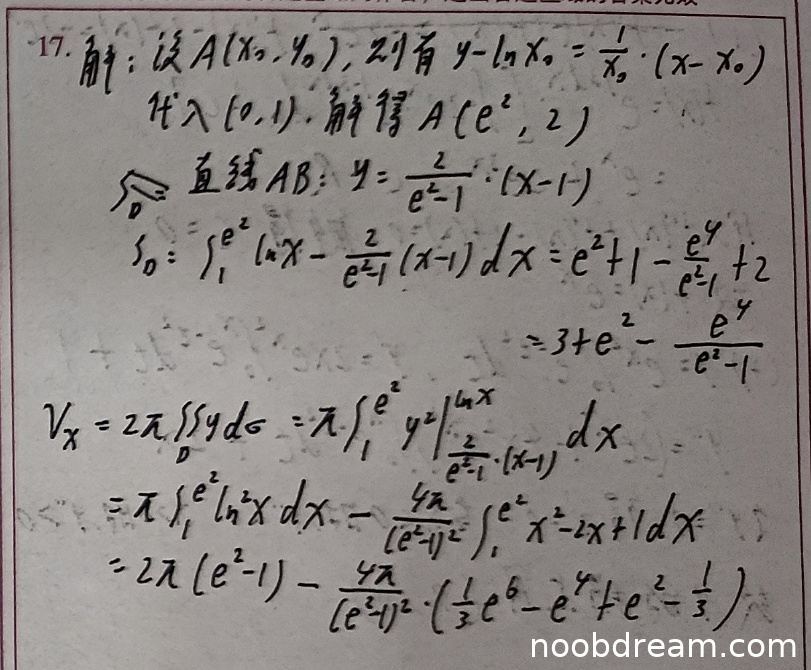 17. 解：设A(x₀,y₀),则有 y-lnx₀ = 1/x₀·(x-x₀)
代入(0,1).解得A(e²,2)
直线AB: y = 2/(e²-1)·(x-1)
S_D = ∫₁^{e²} lnx - 2/(e²-1)(x-1)dx = e²+1 - e⁴/(e²-1) + 2
= 3+e² - e⁴/(e²-1)
Vₓ = 2π∬_D ydσ = π∫₁^{e²} y²|_{2/(e²-1)·(x-1)}^{lnx} dx
= π∫₁^{e²} ln²x dx - 4π/(e²-1)² ∫₁^{e²} x²-2x+1dx
= 2π(e²-1) - 4π/(e²-1)²·(1/3 e⁶-e⁴+e²-1/3)
noobdream.com